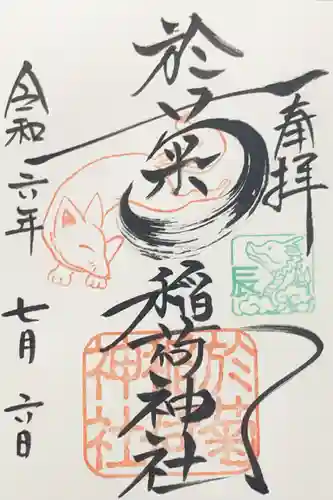 奉拝
於菊
稲荷神社
令和六年
七月六日
辰
於菊
稲荷
神社